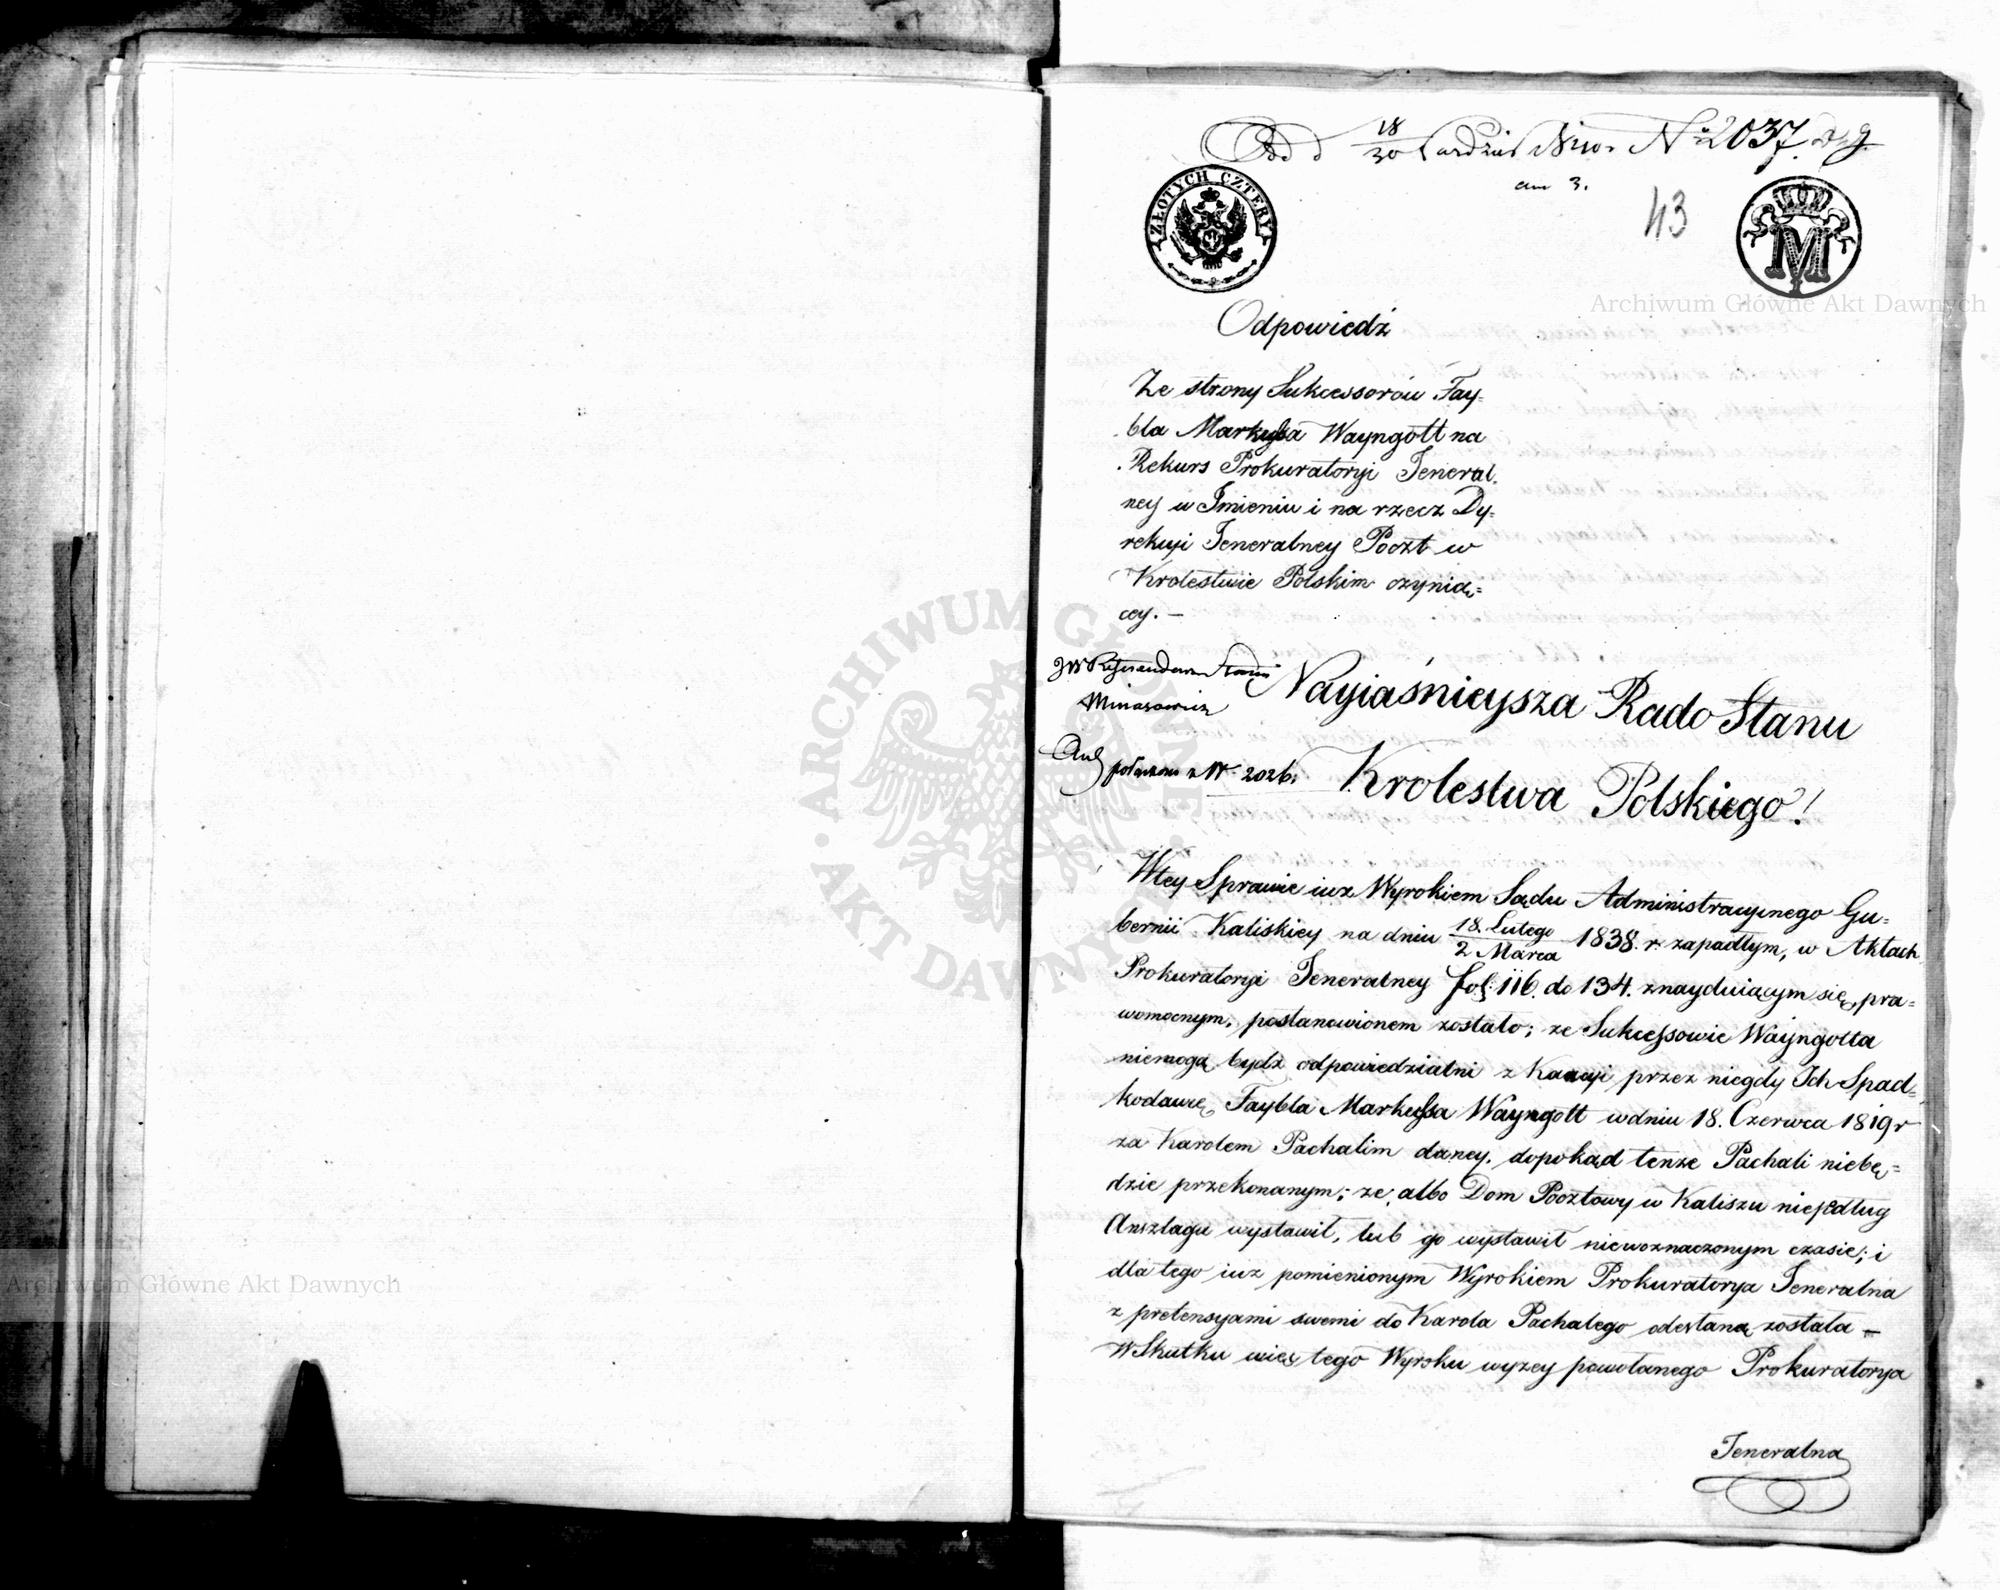 18
30
Nro. N 2037.
ZŁOTYCH CZTERY
M
43
Archiwum Główne Akt Dawnych
Odpowiedź
Ze strony Sukcessorów Fay-
bla Markussa Wayngott na
Rekurs Prokuratoryi Jeneral-
ney w Imieniu i na rzecz Dy-
rekcyi Jeneralney Poczt w
Krolestwie Polskim czynią-
cey. —
JW Referendarz Stanu
Minasowicz
połączono z N 2026.
Nayiaśnieysza Rado Stanu
Krolestwa Polskiego!
ARCHIWUM GŁÓWNE AKT DAWNYCH
Wtey Sprawie iuz Wyrokiem Sądu Administracyinego Gu-
bernii Kaliskiey na dniu 18. Lutego / 2 Marca 1838. r. zapadłym, w Aktach
Prokuratoryi Jeneralney fol: 116. do 134. znayduiącym się, pra-
womocnym, postanowionem zostało; ze Sukcessowie Wayngotta
niemogą bydz odpowiedzialni z Kaucyi przez niegdy Ich Spad-
kodawcę Faybla Markussa Wayngott wdniu 18. Czerwca 1819 r
za Karolem Pachalim daney, dopokąd tenze Pachali niebę-
dzie przekonanym; ze albo Dom Pocztowy w Kaliszu niepodług
Anszlagu wystawił, lub go wystawił niewoznaczonym czasie; i
dla tego iuz pomienionym Wyrokiem Prokuratorya Jeneralna
z pretensyami swemi do Karola Pachalego odesłaną została —
WSkutku więc tego Wyroku wyzey powołanego Prokuratorya
Jeneralna
Archiwum Główne Akt Dawnych